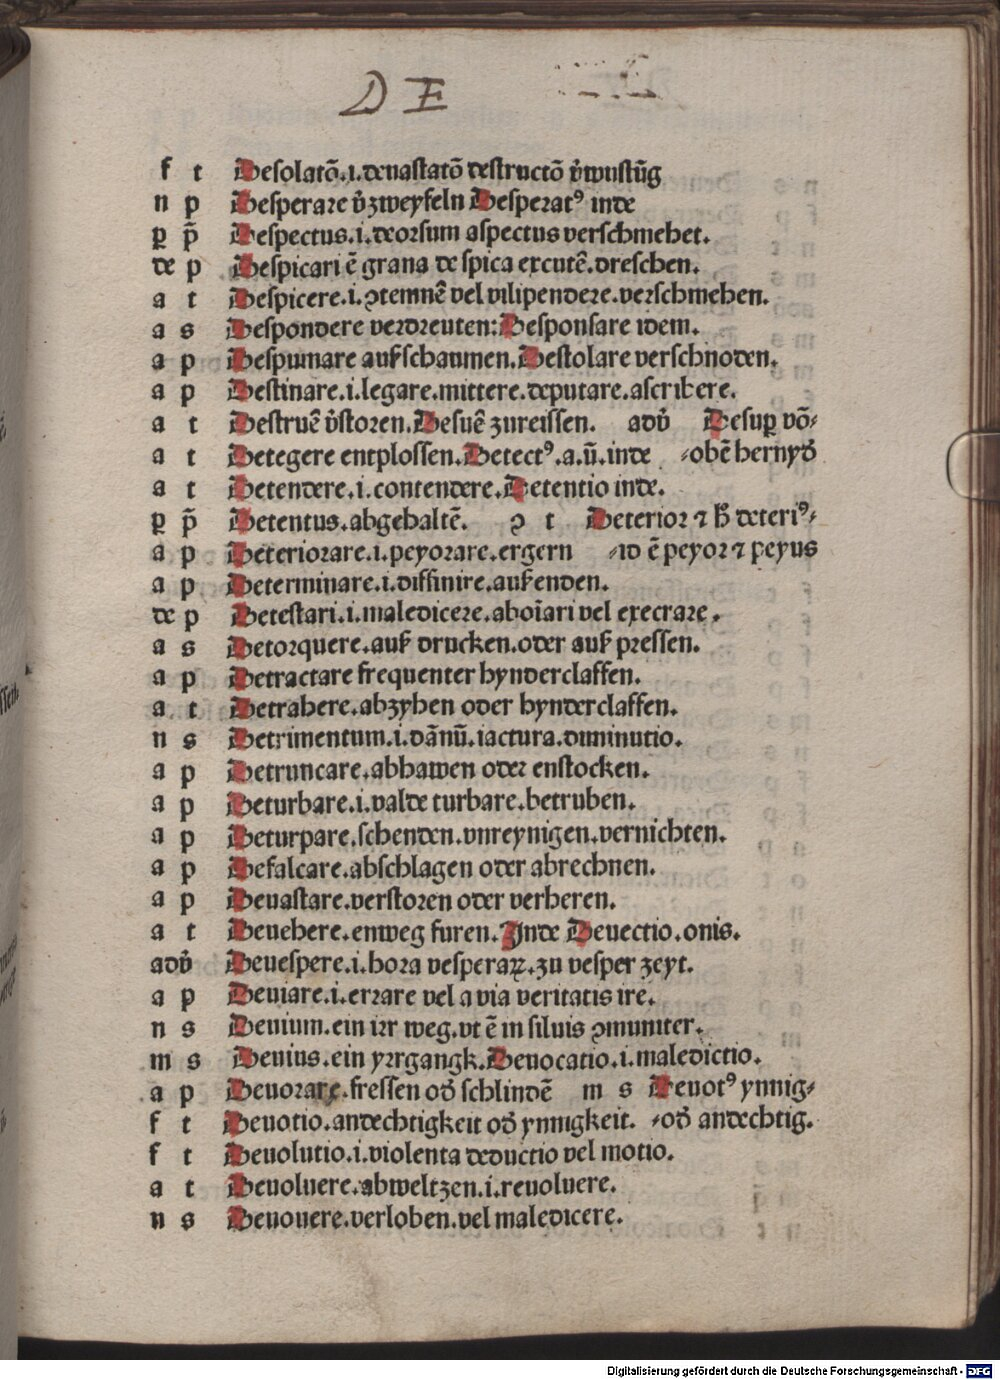 D E
f t Desolatō.i.deuastatō destructō v̓wustūg
n p Desperare v̓zweyfeln Desperatꝰ inde
ꝑ p̄ Despectus.i.deorsum aspectus verschmehet.
de p Despicari ē grana de spica excutē.dreschen.
a t Despicere.i.ꝯtemnē vel vilipendere.verschmehen.
a s Despondere verdreuten:Desponsare idem.
a p Despumare aufschaumen.Destolare verschnoden.
a p Destinare.i.legare.mittere.deputare.ascribere.
a t Destruē v̓storen.Desuē zureissen. adv̓ Desuꝑ vō⸗
a t Detegere entplossen.Detectꝰ.a.ū.inde ⸗obē hernyd̓
a t Detendere.i.contendere.Detentio inde.
ꝑ p̄ Detentus.abgehaltē. ꝯ t Deterior ⁊ h̓ deteriꝰ⸗
a p Deteriorare.i.peyorare.ergern ⸗id ē peyor ⁊ peyus
a p Determinare.i.diffinire.aufenden.
de p Detestari.i.maledicere.aboīari vel execrare.
a s Detorquere.auß drucken.oder auß pressen.
a p Detractare frequenter hynderclaffen.
a t Detrahere.abzyhen oder hynderclaffen.
n s Detrimentum.i.dānū.iactura.diminutio.
a p Detruncare.abhawen oder enstocken.
a p Deturbare.i.valde turbare.betruben.
a p Deturpare.schenden.vnreynigen.vernichten.
a p Defalcare.abschlagen oder abrechnen.
a p Deuastare.verstoren oder verheren.
a t Deuehere.enweg furen.Inde Deuectio.onis.
adv̓ Deuespere.i.hora vesperaꝝ.zu vesper zeyt.
a p Deuiare.i.errare vel a via veritatis ire.
n s Deuium.ein irr weg.vt ē in siluis ꝯmuniter.
m s Deuius.ein yrrgangk.Deuocatio.i.maledictio.
a p Deuorare.fressen od̓ schlindē m s Deuotꝰ ynnig⸗
f t Deuotio.andechtigkeit od̓ ynnigkeit. ⸗od̓ andechtig.
f t Deuolutio.i.violenta deductio vel motio.
a t Deuoluere.abweltzen.i.reuoluere.
n s Deuouere.verloben.vel maledicere.
Digitalisierung gefördert durch die Deutsche Forschungsgemeinschaft - DFG